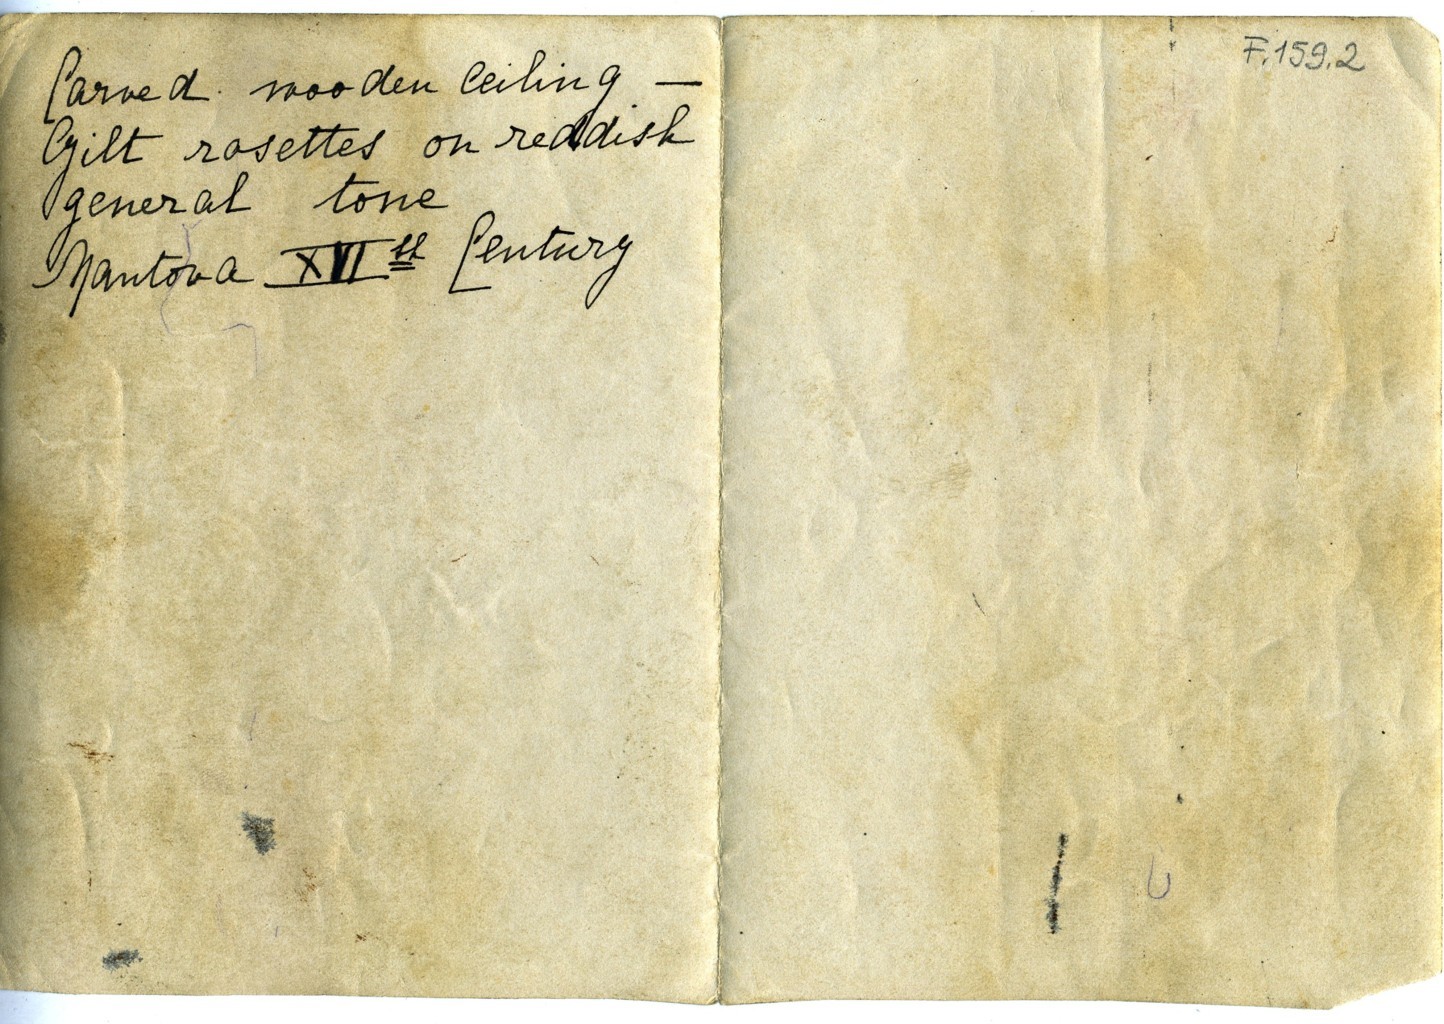 Carved wooden ceiling —
Gilt rosettes on reddish
general tone
Mantova XVIth Century
F.159.2